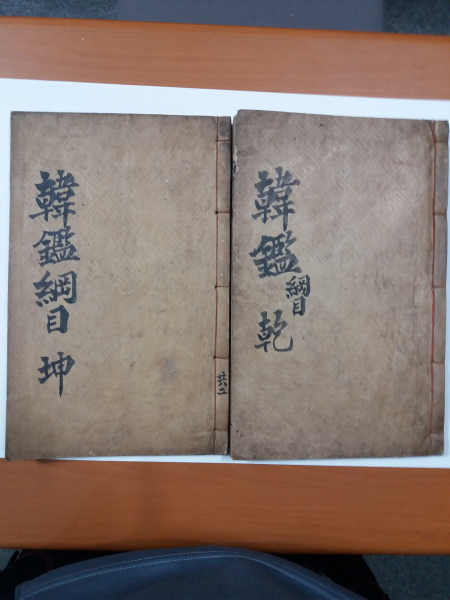 韓鑑綱目 乾
韓鑑綱目 坤
共二